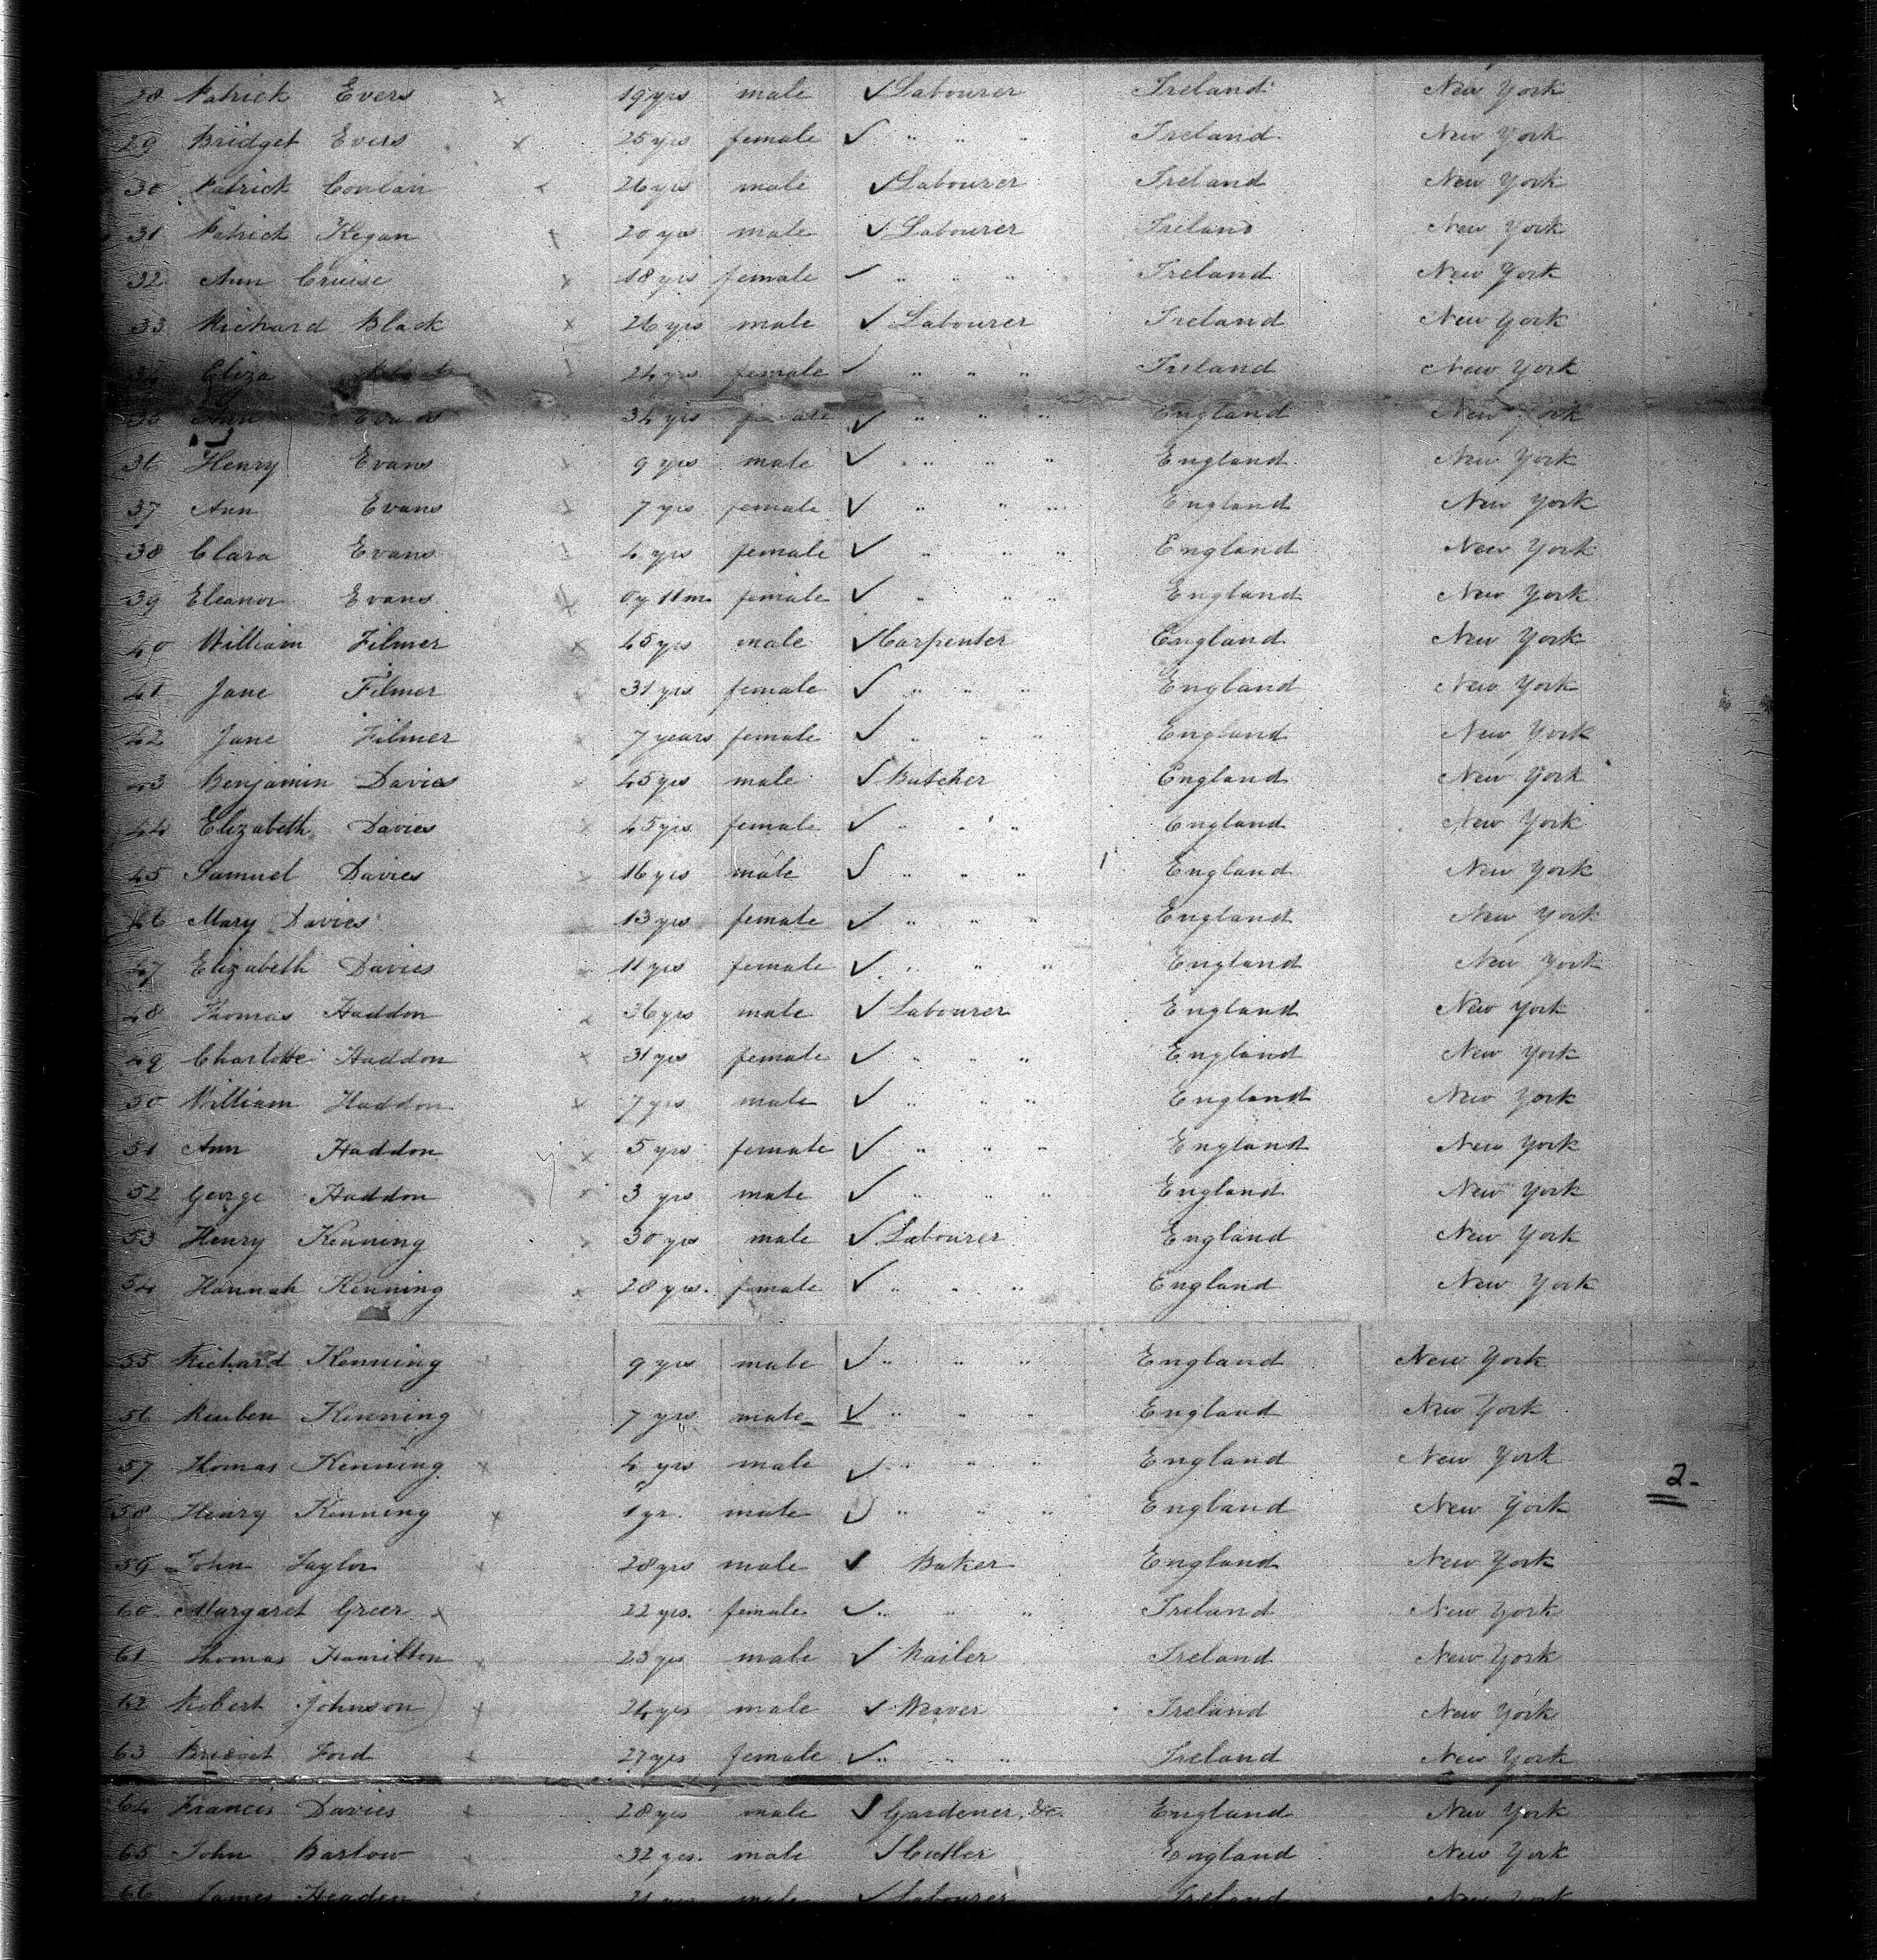 28 Patrick Evers x 19 yrs male ✓ Labourer Ireland New York
29 Bridget Evers x 25 yrs female ✓ " " " Ireland New York
30 Patrick Conlan x 26 yrs male ✓ Labourer Ireland New York
31 Patrick Kegan x 20 yrs male ✓ Labourer Ireland New York
32 Ann Cruise x 18 yrs female ✓ " " " Ireland New York
33 Richard Black x 26 yrs male ✓ Labourer Ireland New York
34 Eliza 24 yrs female ✓ " " " Ireland New York
35 Ann Evans 34 yrs female ✓ " " " England New York
36 Henry Evans x 9 yrs male ✓ " " " England New York
37 Ann Evans x 7 yrs female ✓ " " " England New York
38 Clara Evans x 4 yrs female ✓ " " " England New York
39 Eleanor Evans x 0y 11m female ✓ " " " England New York
40 William Filmer x 45 yrs male ✓ Carpenter England New York
41 Jane Filmer x 31 yrs female ✓ " " " England New York
42 Jane Filmer x 7 years female ✓ " " " England New York
43 Benjamin Davies x 45 yrs male ✓ Butcher England New York
44 Elizabeth Davies x 45 yrs female ✓ " " " England New York
45 Samuel Davies x 16 yrs male ✓ " " " England New York
46 Mary Davies x 13 yrs female ✓ " " " England New York
47 Elizabeth Davies x 11 yrs female ✓ " " " England New York
48 Thomas Haddon x 36 yrs male ✓ Labourer England New York
49 Charlotte Haddon x 31 yrs female ✓ " " " England New York
50 William Haddon x 7 yrs male ✓ " " " England New York
51 Ann Haddon x 5 yrs female ✓ " " " England New York
52 George Haddon x 3 yrs male ✓ " " " England New York
53 Henry Kenning x 30 yrs male ✓ Labourer England New York
54 Hannah Kenning x 28 yrs. female ✓ " " " England New York
55 Richard Kenning x 9 yrs male ✓ " " " England New York
56 Reuben Kenning x 7 yrs male ✓ " " " England New York
57 Thomas Kenning x 4 yrs male ✓ " " " England New York
2.
58 Henry Kenning x 1 yr. male ✓ " " " England New York
59 John Taylor x 28 yrs male ✓ Baker England New York
60 Margaret Greer x 22 yrs. female ✓ " " " Ireland New York
61 Thomas Hamilton x 23 yrs male ✓ Nailer Ireland New York
62 Robert Johnson x 24 yrs male ✓ Weaver Ireland New York
63 Bridget Ford x 27 yrs female ✓ " " " Ireland New York
64 Francis Davies x 28 yrs male ✓ Gardener, &c. England New York
65 John Barlow x 32 yrs. male ✓ Cutler England New York
66 James male ✓ Labourer Ireland New York